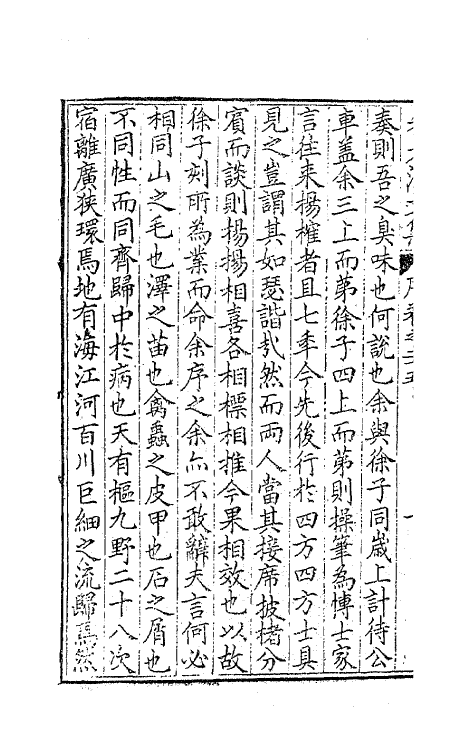 奏則吾之臭味也何說也余與徐子同歲上計待公
車盖余三上而苐徐子四上而苐則操筆為博士家
言往来揚榷者且七年今先後行於四方四方士具
見之豈謂其如瑟諧㦲然而两人當其接席披楮分
賓而談則揚揚相喜各相標相推今果相效也以故
徐子刻所為業而命余序之余亦不敢辭夫言何必
相同山之毛也澤之苗也禽蟲之皮甲也石之屑也
不同性而同齊歸中於病也天有樞九野二十八次
宿離廣狹環焉地有海江河百川巨細之流歸焉然